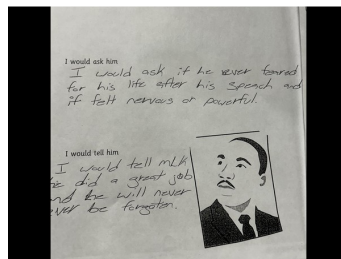 I would ask him
I would ask if he ever feared
for his life after his speach and
if felt nervous or powerful.
I would tell him
I would tell MLK
he did a great job
and he will never
ever be forgoten.